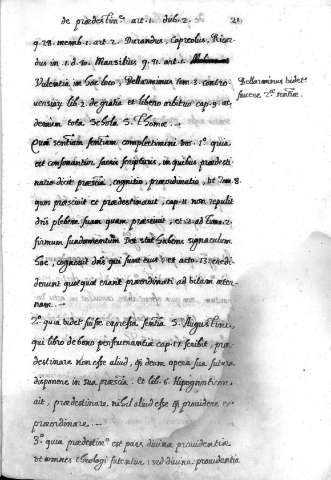 de prædestinne. art. 1. dub. 2. 21
q. 28. memb. 1. art. 2. Durandus, Capreolus, Ricar
dus in 1. d. 40. Marsilius q. 41. art. 1.
Valentia in hoc loco, Bellarminus tom. 3. contro-
uersiar lib. 2. de gratia et libero arbitrio cap. 9. ac
demum tota schola S. Thomæ.
Bellarminus videt
fauere 2æ sentiæ.
Quam sentiam complectimini nos. 1º quia
est consonantior sacris scripturis, in quibus prædesti
natio dicit præscia, cognitio, præordinatio, ut Rom. 8.
quos præsciuit et prædestinauit, cap. 11 non repulit
dns plebem suam quam præsciuit, et 2. ad Timo. 2.
firmum fundamentum Dei stat habens signaculum
hoc, cognouit dns qui sunt eius: et acto. 13 credi-
derunt quotquot erant præordinati ad vitam æter-
nam.
2º quia videt fuisse expressa sentia S. Augustini,
qui libro de bono perseuerantiæ cap. 17. scribit, præ
destinare non esse aliud, qm deum opera sua futura
disponere in sua præscia. et lib. 6. Hipognosticon
ait, prædestinare nihil aliud esse qm præuidere et
præordinare.
3º quia prædestino est pars diuinæ prouidentiæ
ut omnes theologi fatentur: sed diuina prouidentia